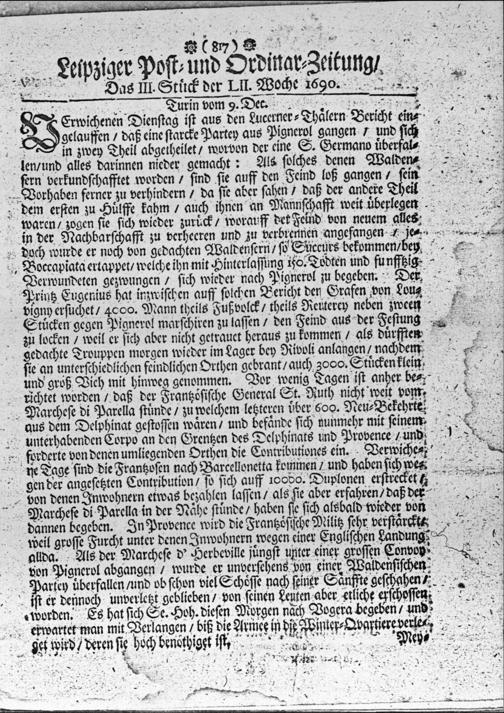 ( 817 )
Leipziger Post- und Ordinar-Zeitung/
Das III. Stück der LII. Woche 1690.
Turin vom 9. Dec.
VErwichenen Dienstag ist aus den Lucerner-Thälern Bericht ein-
gelauffen / daß eine starcke Partey aus Pignerol gangen / und sich
in zwey Theil abgetheilet / worvon der eine S. Germano überfal-
len/und alles darinnen nieder gemacht: Als solches denen Walden-
sern verkundschafftet worden / sind sie auff den Feind loß gangen / sein
Vorhaben ferner zu verhindern / da sie aber sahen / daß der andere Theil
dem ersten zu Hülffe kahm / auch ihnen an Mannschafft weit überlegen
waren / zogen sie sich wieder zurück / worauff der Feind von neuem alles
in der Nachbarschafft zu verheeren und zu verbrennen angefangen / je-
doch wurde er noch von gedachten Waldensern/ so Succurs bekommen/bey
Boccapiata ertappet/ welche ihn mit Hinterlassung 150. Todten und funfftzig
Verwundeten gezwungen / sich wieder nach Pignerol zu begeben. Der
Printz Eugenius hat inzwischen auff solchen Bericht den Grafen von Lou-
vigny ersuchet / 4000. Mann theils Fußvolck / theils Reuterey neben zween
Stücken gegen Pignerol marschiren zu lassen / den Feind aus der Festung
zu locken / weil er sich aber nicht getrauet heraus zu kommen / als dürfften
gedachte Trouppen morgen wieder im Lager bey Rivoli anlangen / nachdem
sie an unterschiedlichen feindlichen Orthen gebrant / auch 3000. Stücken klein
und groß Vieh mit hinweg genommen. Vor wenig Tagen ist anher be-
richtet worden / daß der Frantzösische General St. Ruth nicht weit vom
Marchese di Parella stünde / zu welchem letzteren über 600. Neu-Bekehrte
aus dem Delphinat gestossen wären / und befände sich nunmehr mit seinem
unterhabenden Corpo an den Grentzen des Delphinats und Provence / und
forderte von denen umliegenden Orthen die Contributiones ein. Verwiche-
ne Tage sind die Frantzosen nach Barcellonetta kommen / und haben sich we-
gen der angesetzten Contribution / so sich auff 10000. Duplonen erstrecket /
von denen Inwohnern etwas bezahlen lassen / als sie aber erfahren / daß der
Marchese di Parella in der Nähe stünde / haben sie sich alsbald wieder von
dannen begeben. In Provence wird die Frantzösische Militz sehr verstärckt/
weil grosse Furcht unter denen Inwohnern wegen einer Englischen Landung
allda. Als der Marchese d' Herbeville jüngst unter einer grossen Convoy
von Pignerol abgangen / wurde er unversehens von einer Waldensischen
Partey überfallen / und ob schon viel Schösse nach seiner Sänffte geschahen /
ist er dennoch unverletzt geblieben / von seinen Leuten aber etliche erschossen
worden. Es hat sich Se. Hoh. diesen Morgen nach Vogera begeben / und
erwartet man mit Verlangen / biß die Armee in die Winter-Quartiere verle-
get wird / deren sie hoch benöthiget ist.
Mey-